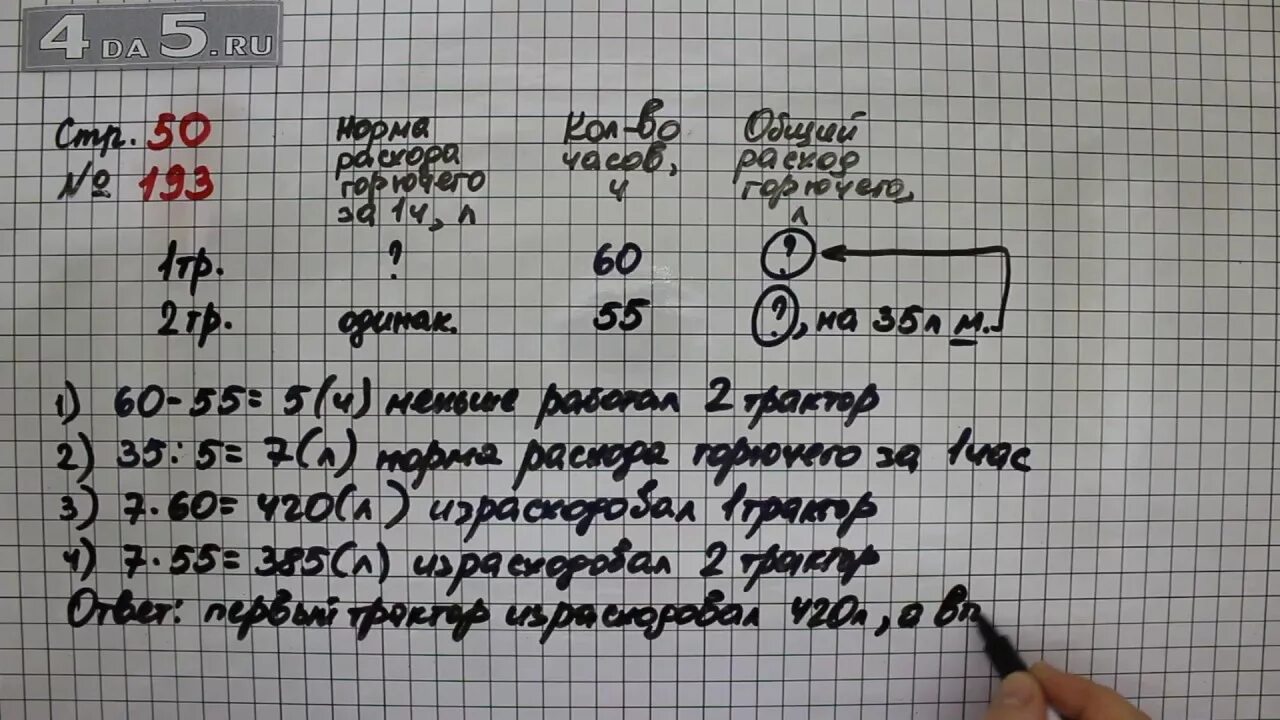 4DA5.RU
Стр. 50
№ 193
Норма расхода горючего за 1ч, л
Кол-во часов, ч
Общий расход горючего, л
1тр. ? 60 ?
2тр. одинак. 55 ?, на 35л м.
1) 60-55= 5(ч) меньше работал 2 трактор
2) 35:5= 7(л) норма расхода горючего за 1час
3) 7·60= 420(л) израсходовал 1трактор
4) 7·55= 385(л) израсходовал 2 трактор
Ответ: первый трактор израсходовал 420л, а вт